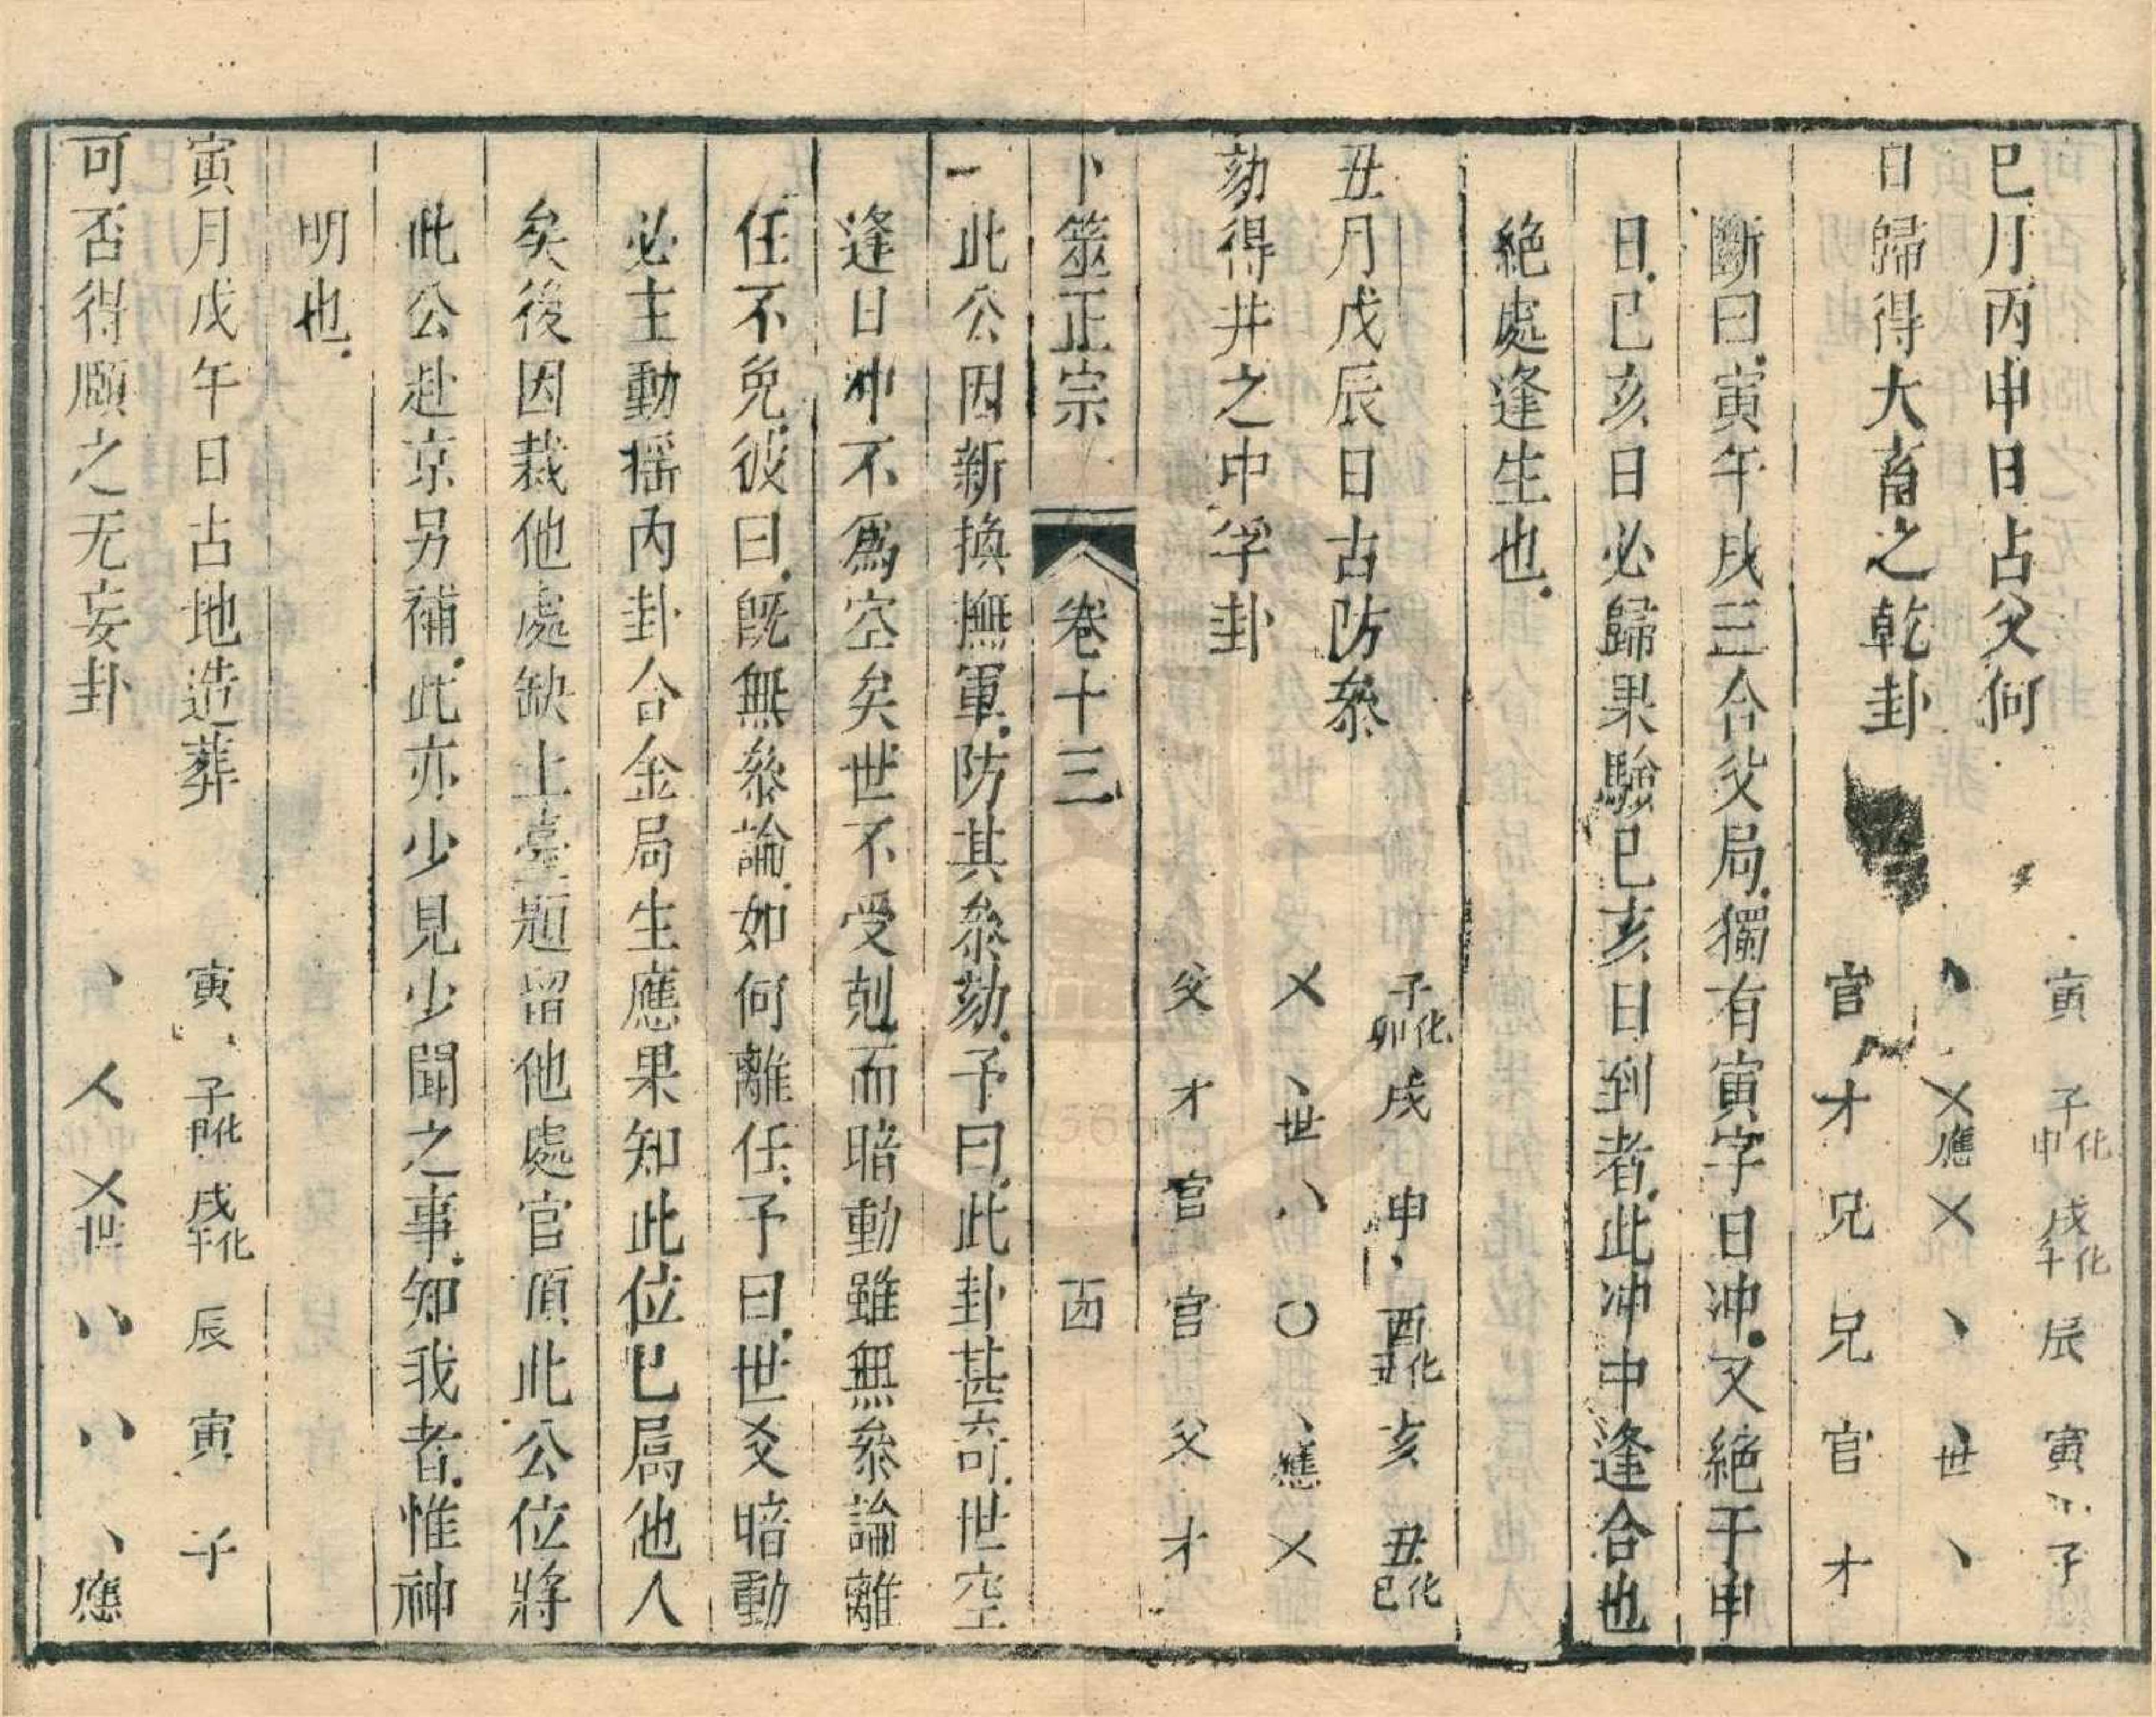 巳月丙申日占父何
日歸得大畜之乾卦
寅 子化申 戌化午 辰 寅 子
、 乂應 乂 、 、世 、
官 才 兄 兄 官 才
斷曰寅午戌三合父局獨有寅字日冲又絕于申
日巳亥日必歸果驗巳亥日到者此冲中逢合也
絕處逢生也
丑月戊辰日古防叅
劾得井之中孚卦
子化卯 戌 申 酉化丑 亥 丑化巳
乂 、世 、、 〇 、應 乂
父 才 官 官 父 才
卜筮正宗 卷十三 西
一此公因新換撫軍防其叅劾予曰此卦甚奇世空
逢日冲不爲空矣世不受剋而暗動雖無叅論離
任不免彼曰旣無叅論如何離任予曰世爻暗動
必主動搖內卦合金局生應果知此位巳屬他人
矣後因裁他處缺上臺題留他處官頂此公位將
此公赴京另補此亦少見少聞之事知我者惟神
明也
寅月戊午日占地造葬
可否得頤之无妄卦
寅 子化 戌化午 辰 寅 子
、 乂 乂世 、、 、、 、應